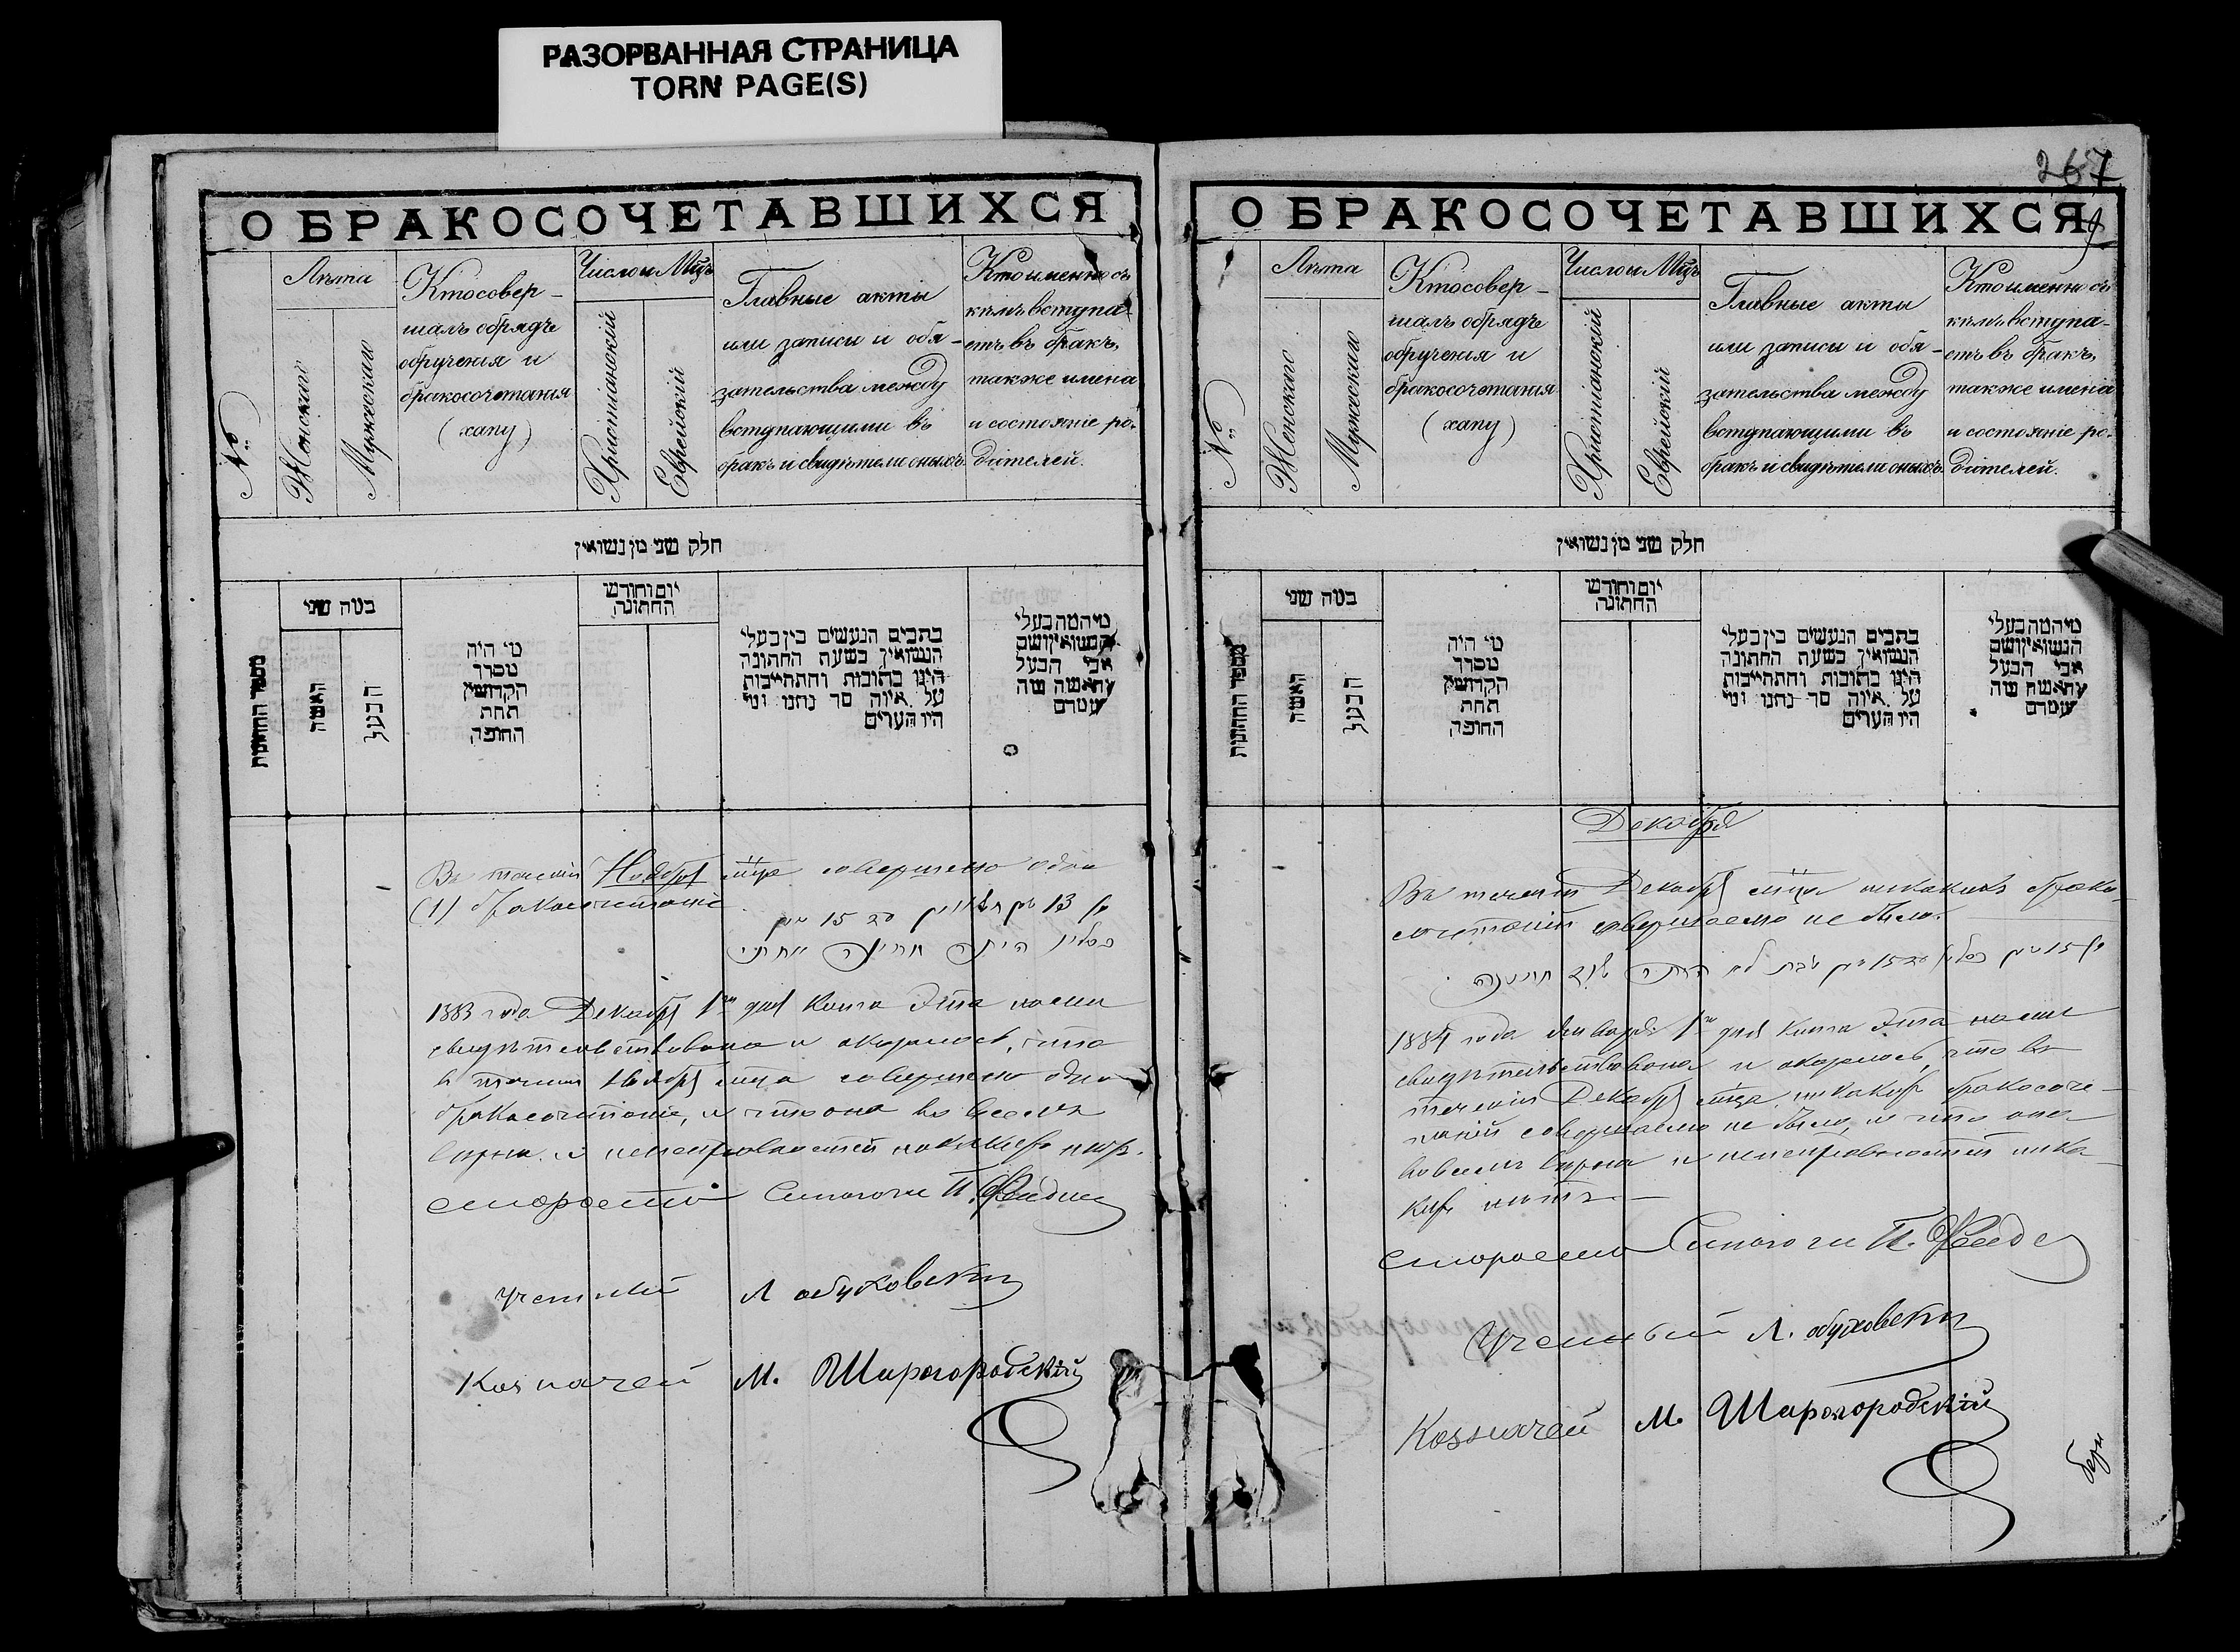 РАЗОРВАННАЯ СТРАНИЦА
TORN PAGE(S)
О БРАКОСОЧЕТАВШИХСЯ
№
Лѣта
Женскаго
Мужескаго
Кто совер-
шалъ обрядъ
обрученія и
бракосочетанія
(хапу)
Число и Мцъ
Христіанскій
Еврейскій
Главные акты
или записи и обя-
зательства между
вступающими въ
бракъ и свидѣтели оныхъ.
Кто именно съ
кѣмъ вступа-
етъ въ бракъ,
также имена
и состояніе ро-
дителей.
חלק שני מן נשואין
מספר החתונות
במה שני
האשה
הבעל
מי היה
מסדר
הקדושין
תחת
החופה
יום וחודש
החתונה
כתבים הנעשים בין בעלי
הנשואין בשעה החתונה
היגו כתובות והתחייבות
על איזה סך נתנו ומי
היו הערים
מיהמה בעלי
הנשואין ושם
אבי הבעל
והאשה מה
שמם
Въ теченіи Ноября мца совершено одно
(1) бракосочетаніе
1883 года Декабря 1го дня Книга Эта нами
свидѣтельствована и оказалось, что
въ теченіи Ноября мца совершено одно
бракосочетаніе, и что она во всемъ
вѣрна и неисправностей никакихъ нѣтъ.
Староста Синагоги П.
Ученый Л Обуховскій
Казначей М. Шарогородскій
267
О БРАКОСОЧЕТАВШИХСЯ
№
Лѣта
Женскаго
Мужескаго
Кто совер-
шалъ обрядъ
обрученія и
бракосочетанія
(хапу)
Число и Мцъ
Христіанскій
Еврейскій
Главные акты
или записи и обя-
зательства между
вступающими въ
бракъ и свидѣтели оныхъ.
Кто именно съ
кѣмъ вступа-
етъ въ бракъ,
также имена
и состояніе ро-
дителей.
חלק שני מן נשואין
מספר החתונות
במה שני
האשה
הבעל
מי היה
מסדר
הקדושין
תחת
החופה
יום וחודש
החתונה
כתבים הנעשים בין בעלי
הנשואין בשעה החתונה
היגו כתובות והתחייבות
על איזה סך נתנו ומי
היו הערים
מיהמה בעלי
הנשואין ושם
אבי הבעל
והאשה מה
שמם
Декабря
Въ теченіи Декабря мца никакихъ брако-
сочетаній совершаемо не было.
1884 года Января 1го дня Книга Эта нами
свидѣтельствована и оказалось, что въ
теченіи Декабря мца никакихъ бракосоче-
таній совершаемо не было, и что она
во всемъ вѣрна и неисправностей ника-
кихъ нѣтъ
Староста Синагоги П.
Ученый Л. Обуховскій
Казначей М. Шарогородскій